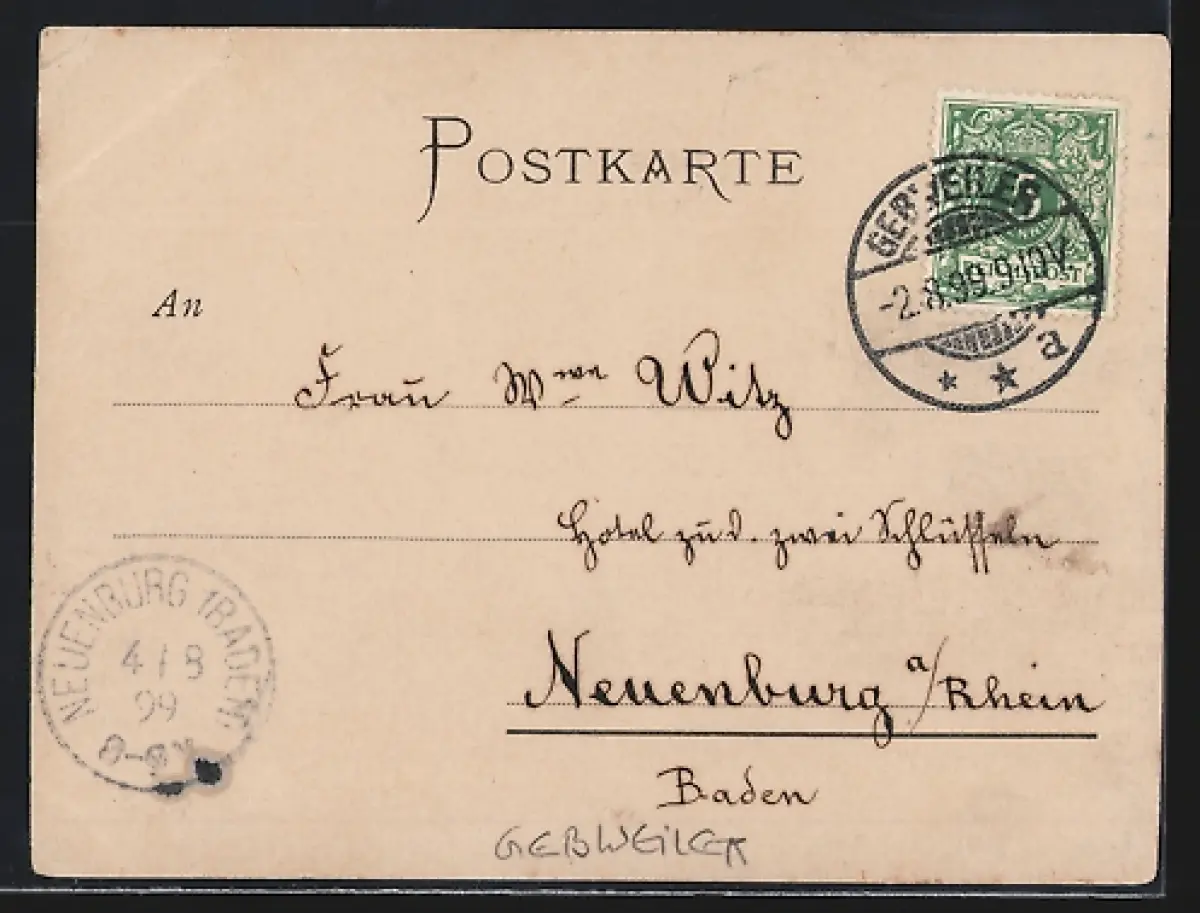 POSTKARTE
5
GEBWEILER
-2.8.99.9-10V.
* * a
An
Frau Wwe Witz
Hotel zu d. zwei Schlüsseln
Neuenburg a/Rhein
Baden
NEUENBURG (BADEN)
4/8
99
8-9V
GEBWEILER